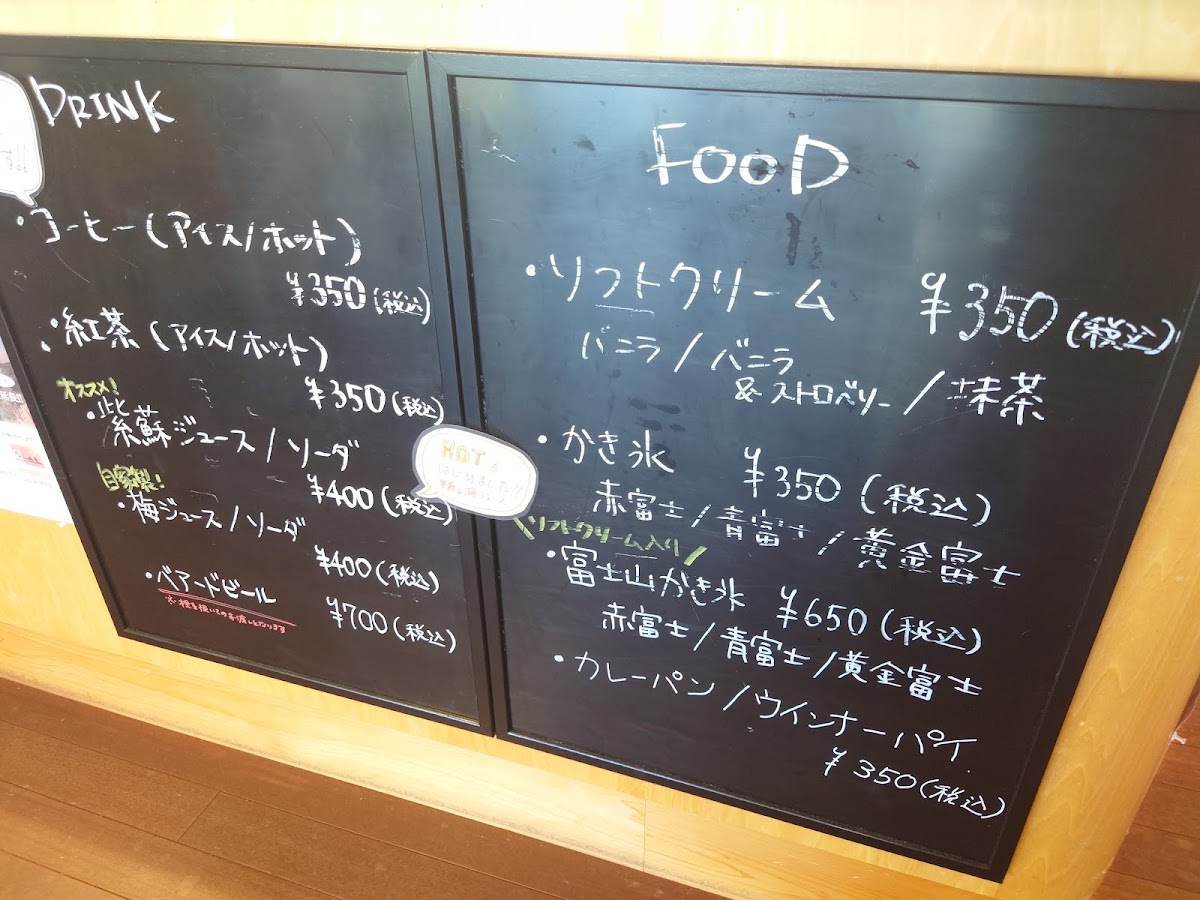 DRINK
・コーヒー(アイス/ホット)
¥350(税込)
・紅茶(アイス/ホット)
¥350(税込)
オススメ!
・紫蘇ジュース/ソーダ
¥400(税込)
自家製!
・梅ジュース/ソーダ
¥400(税込)
・ベアードビール
¥700(税込)
HOTも
はじめました!!
FOOD
・ソフトクリーム ¥350(税込)
バニラ/バニラ
&ストロベリー/抹茶
・かき氷 ¥350(税込)
赤富士/青富士/黄金富士
\ソフトクリーム入り/
・富士山かき氷 ¥650(税込)
赤富士/青富士/黄金富士
・カレーパン/ウインナーパイ
¥350(税込)